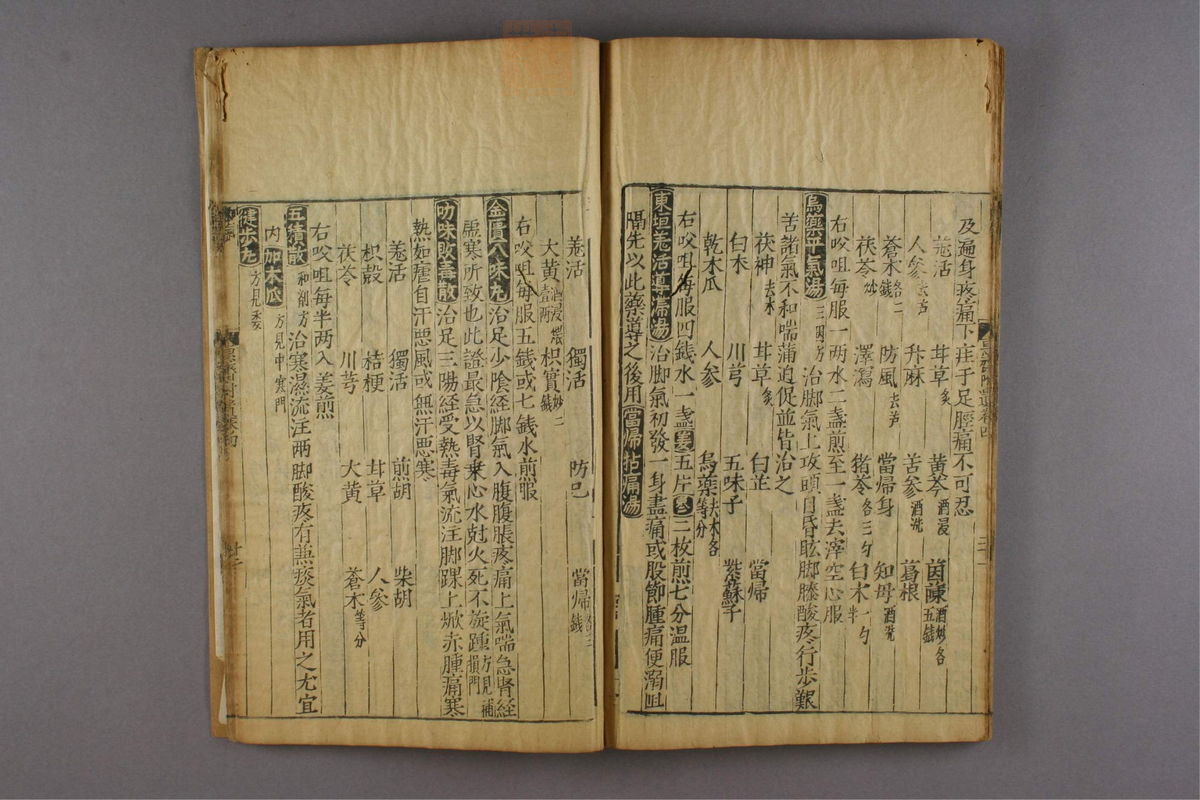 及遍身疼痛下疰于足脛痛不可忍
羗活 甘草炙 黄芩酒浸 茵蔯酒炒各五錢
人參去芦 升麻 苦參酒洗 葛根
蒼术各二錢 防風去芦 當歸身 知母酒洗
茯苓炒 澤瀉 猪苓各三勺 白术一勺半
右㕮咀每服一两水二盞煎至一盞去滓空心服
烏藥平氣湯三因方 治脚氣上攻頭目昏眩脚膝酸疼行歩艱
苦諸氣不和喘蒲迫促並皆治之
茯神去木 甘草炙 白芷 當歸
白术 川芎 五味子 紫蘇子
乾木瓜 人參 烏藥去木各等分
右㕮咀每服四錢水一盞姜五片枣二枚煎七分温服
東垣羗活導滯湯 治脚氣初發一身盡痛或股節腫痛便溺阻
隔先以此藥導之後用當歸拈痛湯
羗活 獨活 防己 當歸各三錢
大黄酒浸煨壹两 枳實炒二錢
右㕮咀每服五錢或七錢水煎服
金匱八味丸 治足少陰経脚氣入腹腹脹疼痛上氣喘急腎経
虛寒所致也此證最急以腎乗心水尅火死不旋踵方見補損門
加味敗毒散 治足三陽経受熱毒氣流注脚踝上焮赤腫痛寒
熱如瘧自汗悪風或無汗悪寒
羗活 獨活 煎胡 柴胡
枳殻 桔梗 甘草 人參
茯苓 川芎 大黄 蒼术等分
右㕮咀每半两入姜煎
五積散和劑方 治寒濕流注两脚酸疼有兼痰氣者用之尤宜
内加木瓜方見中寒門
健歩丸方見